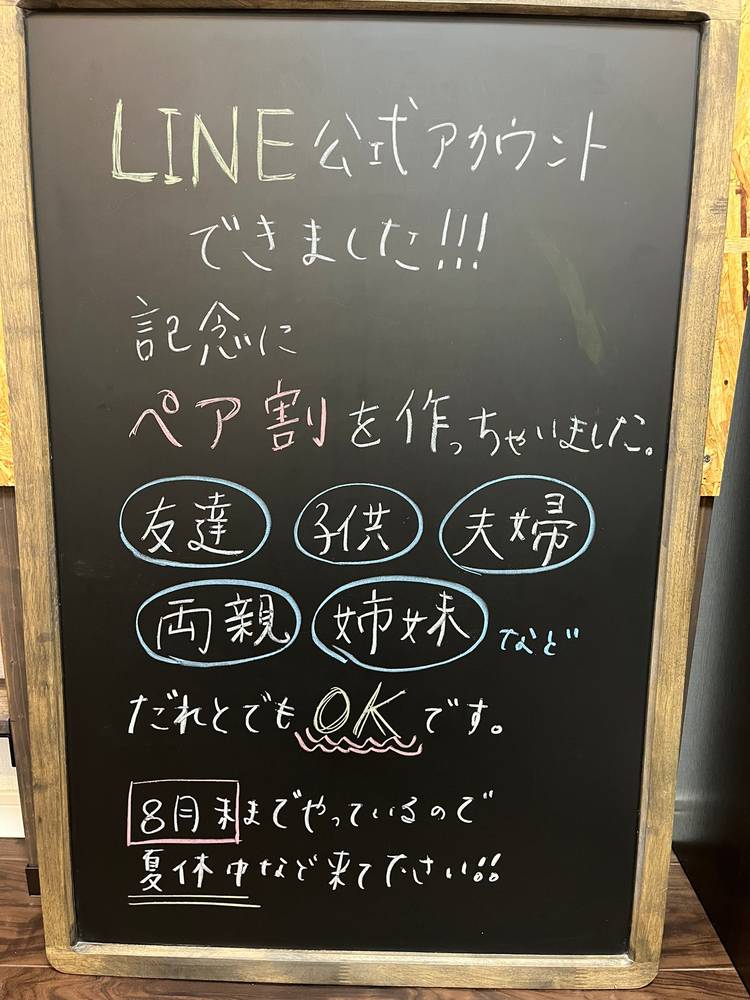 LINE公式アカウント
できました!!!
記念に
ペア割を作っちゃいました。
友達 子供 夫婦
両親 姉妹 など
だれとでもOKです。
8月末までやっているので
夏休中など来て下さい!!